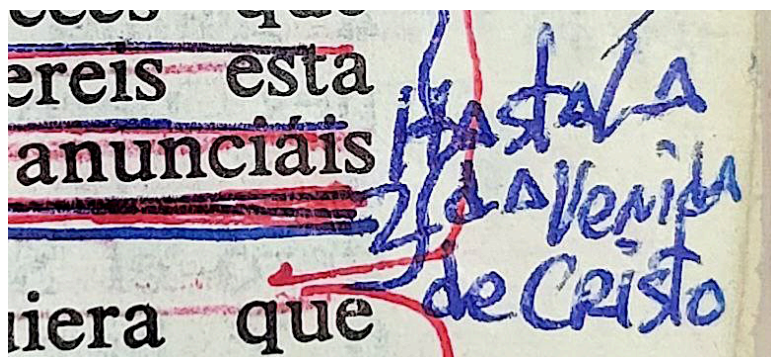 eces que
ereis esta
anunciáis
uiera que
HAstA LA
2dA VeNidA
de CRisto